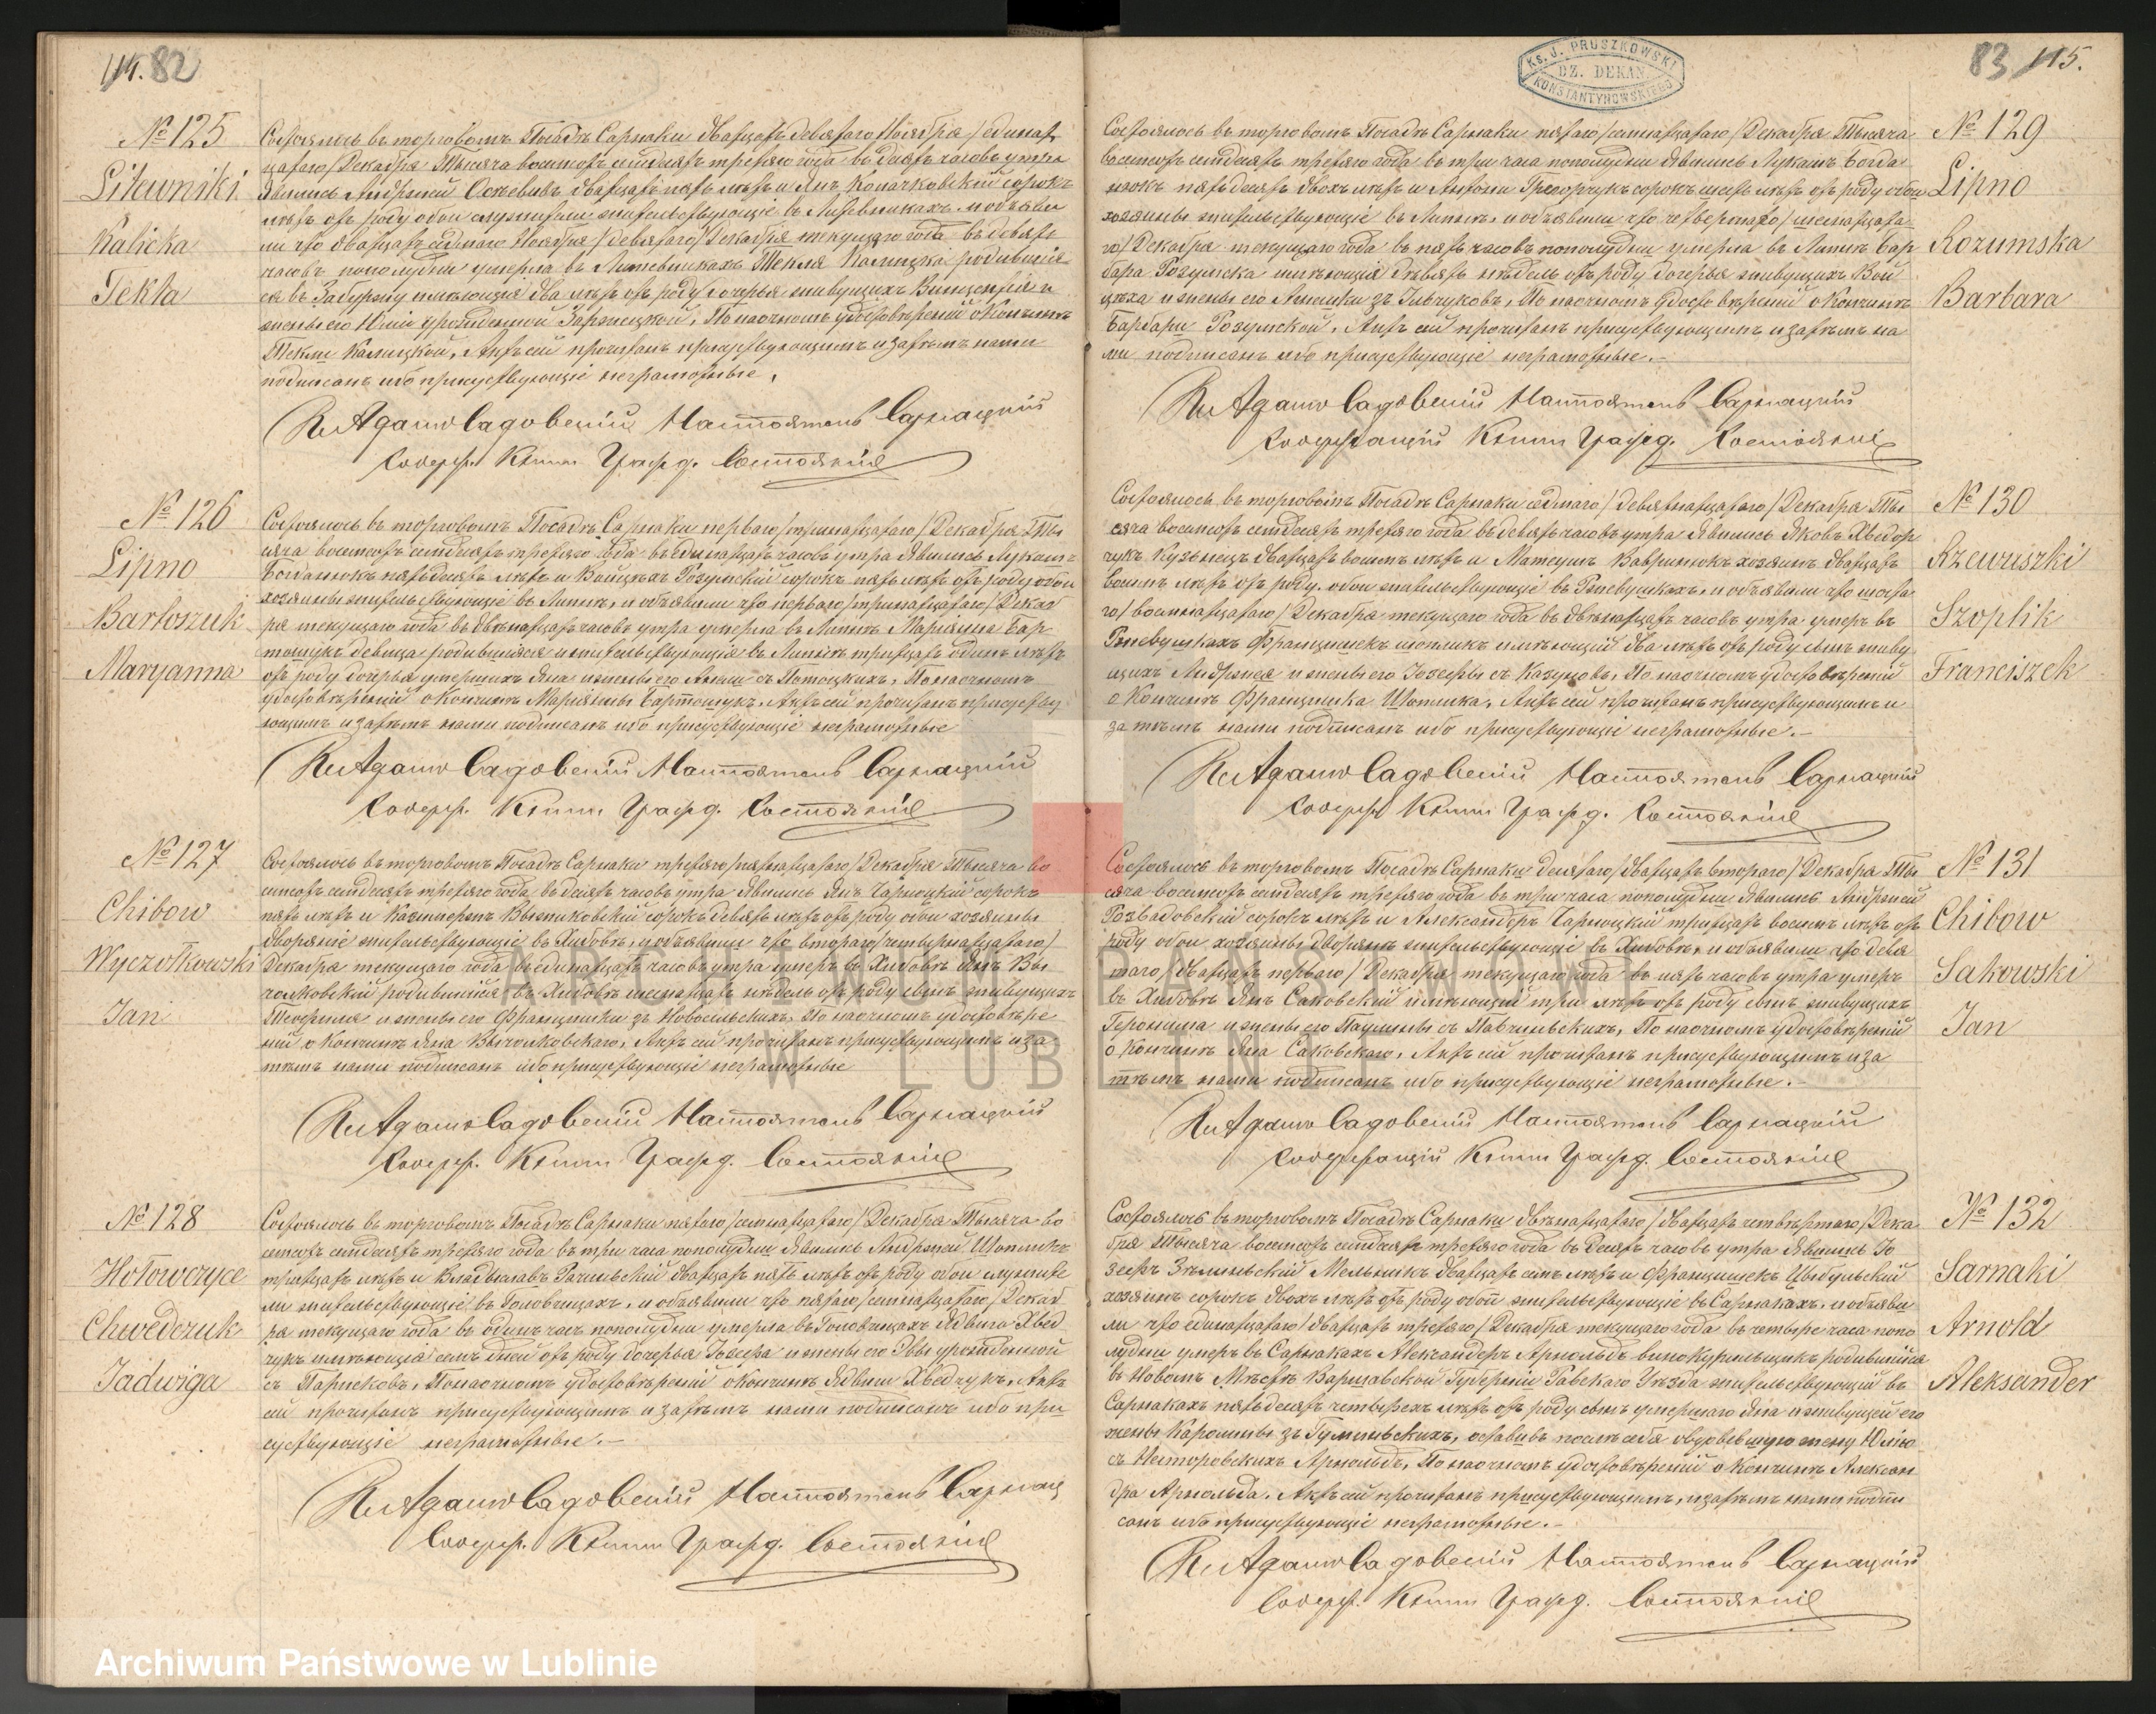 114. 82
№ 125
Litewniki
Kalicka
Tekla
Состоялось въ торговомъ Посадѣ Сарнаки двадцать девятаго Ноября /единат
цатаго/ Декабря Тысяча восемьсотъ семдесятъ третяго года въ десять часовъ утра
Явились Андржей Оскевивъ двадцать пять лѣтъ и Янъ Копачковскій сорокъ
лѣтъ отъ роду обои служители жительствующіе въ Литевникахъ и объяви
ли что двадцать седмаго Ноября /девятаго/ Декабря текущаго года въ девять
часовъ пополудни умерла въ Литевникахъ Текля Калицка родившая
ся въ Забужу имѣющая два лѣтъ отъ роду дочерь живущихъ Винцентія и
жены его Юліи урожденной Заржецкой. По наочномъ удостовѣреніи о Кончинѣ
Текли Калицкой, Актъ сей прочитанъ присутствующимъ и затѣмъ нами
подписанъ ибо присутствующіе неграмотные.
Кс Адамъ Садовскій Настоятель Сарнацкій
Содерж. Книги Гражд. Состоянія
№ 126
Lipno
Bartoszuk
Maryanna
Состоялось въ торговомъ Посадѣ Сарнаки перваго /тринатцатаго/ Декабря Ты
сяча восемьсотъ семдесятъ третяго года въ единатцать часовъ утра Явились Лукашъ
Богданюкъ пятьдесятъ лѣтъ и Войцѣхъ Розумскій сорокъ пять лѣтъ отъ роду обои
хозяины жительствующіе въ Липнѣ, и объявили что перваго /тринатцатаго/ Декаб
ря текущаго года въ двѣнатцать часовъ утра умерла въ Липнѣ Маріянна Бар
тошукъ девица родившаяся и жительствующая въ Липнѣ тритцать одинъ лѣтъ
отъ роду дочерь умершихъ Яна и жены его Анны съ Потоцкихъ. По наочномъ
удостовѣреніи о Кончинѣ Маріянны Бартошукъ. Актъ сей прочитанъ присутству
ющимъ и затѣмъ нами подписанъ ибо присутствующіе неграмотные
Кс Адамъ Садовскій Настоятель Сарнацкій
Содерж. Книги Гражд. Состоянія
№ 127
Chibow
Wyczołkowski
Jan
Состоялось въ торговомъ Посадѣ Сарнаки третяго /пятнатцатаго/ Декабря Тысяча во
семсотъ семдесятъ третяго года въ десять часовъ утра Явились Янъ Чарноцкій сорокъ
пять лѣтъ и Казимержъ Вычолковскій сорокъ девять лѣтъ отъ роду обои хозяины
дворяніе жительствующіе въ Хибовѣ, и объявили что втораго /четырнатцатаго/
Декабря текущаго года въ единатцать часовъ утра умеръ въ Хибовѣ Янъ Вы
чолковскій родившійся въ Хибовѣ шеснатцать недѣль отъ роду сынъ живущихъ
Теофиля и жены его Францишки зъ Новосельскихъ. По наочномъ удостовѣре
ніи о Кончинѣ Яна Вычолковскаго, Актъ сей прочитанъ присутствующимъ и за
тѣмъ нами подписанъ ибо присутствующіе неграмотные
Кс Адамъ Садовскій Настоятель Сарнацкій
Содерж. Книги Гражд. Состоянія
№ 128
Hołowczyce
Chwedczuk
Jadwiga
Состоялось въ торговомъ Посадѣ Сарнаки пятаго /семнатцатаго/ Декабря Тысяча во
семсотъ семдесятъ третяго года въ три часа пополудни Явились Андржей Шопликъ
тритцать лѣтъ и Владыславъ Рачиньскій двадцать пять лѣтъ отъ роду обои служите
ли жительствующіе въ Головчицахъ, и объявили что пятаго /семнатцатаго/ Декаб
ря текущаго года въ одинъ часъ пополудни умерла въ Головчицахъ Ядвига Хвед
чукъ имѣющая семь дней отъ роду дочерь Іозефа и жены его Эвы урожденной
съ Парысковъ. По наочномъ удостовѣреніи о Кончинѣ Ядвиги Хведчукъ, Актъ
сей прочитанъ присутствующимъ и затѣмъ нами подписанъ ибо при
сутствующіе неграмотные.
Кс Адамъ Садовскій Настоятель Сарнац
Содерж. Книги Гражд. Состоянія
83 115.
KS. J. PRUSZKOWSKI
DZ. DEKAN.
KONSTANTYNOWSKIEGO
№ 129
Lipno
Rozumska
Barbara
Состоялось въ торговомъ Посадѣ Сарнаки пятаго /семнатцатаго/ Декабря Тысяча
восемсотъ семдесятъ третяго года въ три часа пополудни Явились Лукашъ Богда
нюкъ пятьдесятъ двохъ лѣтъ и Антони Грегорчукъ сорокъ шесть лѣтъ отъ роду обои
хозяины жительствующіе въ Липнѣ, и объявили что четвертаго /шеснатцата
го/ Декабря текущаго года въ пять часовъ пополудни умерла въ Липнѣ Бар
бара Розумска имѣющая девять недѣль отъ роду дочерь живущихъ Вой
цѣха и жены его Анешки зъ Гивчуковъ. По наочномъ удостовѣреніи о Кончинѣ
Барбары Розумской. Актъ сей прочитанъ присутствующимъ и затѣмъ на
ми подписанъ ибо присутствующіе неграмотные.
Кс Адамъ Садовскій Настоятель Сарнацкій
Содержащій Книги Гражд. Состоянія
№ 130
Rzewuszki
Szoplik
Franciszek
Состоялось въ торговомъ Посадѣ Сарнаки седмаго /девятнатцатаго/ Декабря Ты
сяча восемсотъ семдесятъ третяго года въ девять часовъ утра Явились Яковъ Хведор
чукъ Кузьнецъ двадцать восемъ лѣтъ и Матеушъ Вавринюкъ хозяинъ двадцать
восемъ лѣтъ отъ роду, обои жительствующіе въ Ржевушкахъ, и объявили что шоста
го/ восемнатцатаго/ Декабря текущаго года въ двѣнатцать часовъ утра умеръ въ
Ржевушкахъ Францишекъ Шопликъ имѣющій два лѣтъ отъ роду сынъ живу
щихъ Андржея и жены его Іозефы съ Казуновъ. По наочномъ удостовѣреніи
о Кончинѣ Францишка Шоплика, Актъ сей прочитанъ присутствующимъ и
затѣмъ нами подписанъ ибо присутствующіе неграмотные.
Кс Адамъ Садовскій Настоятель Сарнацкій
Содерж Книги Гражд. Состоянія
№ 131
Chibow
Sakowski
Jan
Состоялось въ торговомъ Посадѣ Сарнаки десятаго /двадцать втораго/ Декабря Ты
сяча восемсотъ семдесятъ третяго года въ три часа пополудни Явились Андржей
Розвадовскій сорокъ лѣтъ и Александръ Чарноцкій тритцать восемъ лѣтъ отъ
роду обои хозяины дворяне жительствующіе въ Хибовѣ, и объявили что девя
таго /двадцать перваго/ Декабря текущаго года въ пять часовъ утра умеръ
въ Хибовѣ Янъ Саковскій имѣющій три лѣтъ отъ роду сынъ живущихъ
Геронима и жены его Паулины съ Павчиньскихъ, По наочномъ удостовѣреніи
о Кончинѣ Яна Саковскаго, Актъ сей прочитанъ присутствующимъ и за
тѣмъ нами подписанъ ибо присутствующіе неграмотные.
Кс Адамъ Садовскій Настоятель Сарнацкій
Содержащій Книги Гражд. Состоянія
№ 132
Sarnaki
Arnold
Aleksander
Состоялось въ торговомъ Посадѣ Сарнаки двѣнатцатаго /двадцать четвертаго/ Дека
бря Тысяча восемсотъ семдесятъ третяго года въ десять часовъ утра Явились Іо
зефъ Зѣлиньскій Мельникъ двадцать семъ лѣтъ и Францишекъ Цыбульскій
хозяинъ сорокъ двохъ лѣтъ отъ роду обои жительствующіе въ Сарнакахъ, и объяви
ли что единатцатаго /двадцать третяго/ Декабря текущаго года въ четыре часа попо
лудни умеръ въ Сарнакахъ Александеръ Арнольдъ винокурильщикъ родившійся
въ Новомъ Мѣстѣ Варшавской Губерніи Равскаго Уѣзда жительствующій въ
Сарнакахъ пятьдесятъ четырехъ лѣтъ отъ роду сынъ умершаго Яна и живущей его
жены Каролины зъ Гуминьскихъ, оставивъ послѣ себя овдовѣвшую жену Юлію
съ Несторовскихъ Арнольдъ, По наочномъ удостовѣреніи о Кончинѣ Алексан
дра Арнольда. Актъ сей прочитанъ присутствующимъ, и затѣмъ нами подпи
санъ ибо присутствующіе неграмотные.
Кс Адамъ Садовскій Настоятель Сарнацкій
Содерж. Книги Гражд. Состоянія
ARCHIWUM PAŃSTWOWE
W LUBLINIE
Archiwum Państwowe w Lublinie